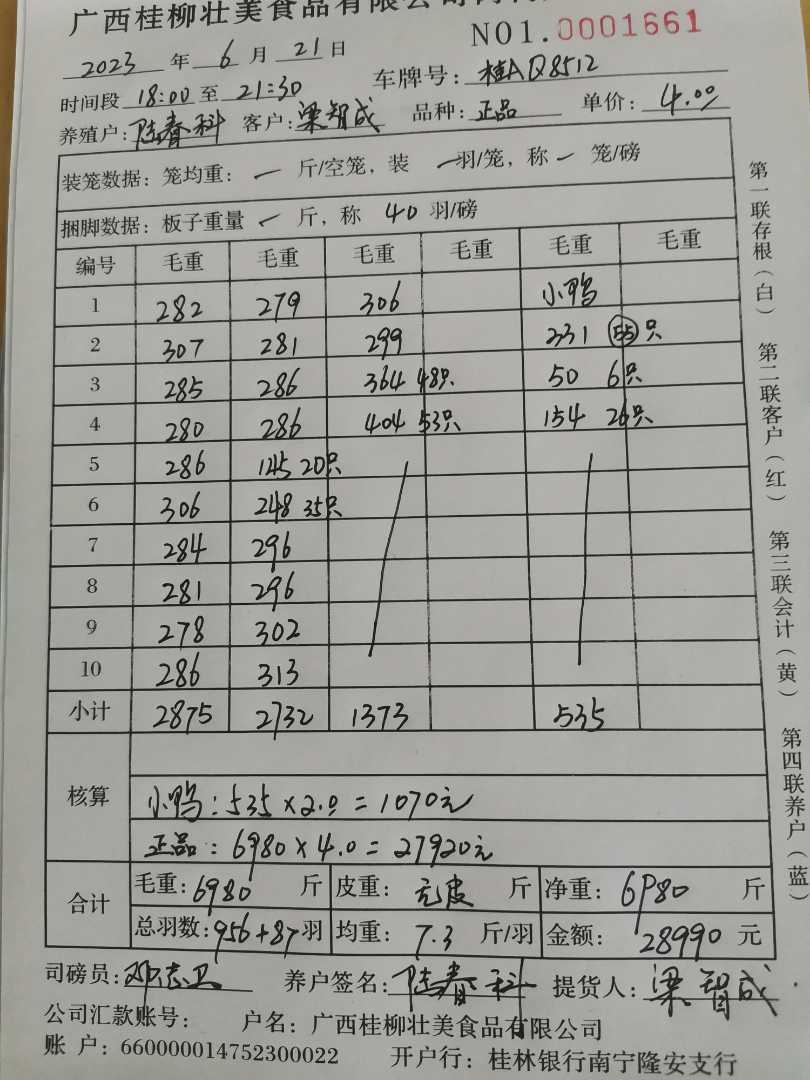 广西桂柳壮美食品有限公司
NO1.0001661
2023 年 6 月 21 日
时间段 18:00 至 21:30 车牌号: 桂AQ8512
养殖户: 陆春科 客户: 梁智成 品种: 正品 单价: 4.00
装笼数据: 笼均重: — 斤/空笼, 装 — 羽/笼, 称 — 笼/磅
捆脚数据: 板子重量 — 斤, 称 40 羽/磅
编号 毛重 毛重 毛重 毛重 毛重 毛重
1 282 279 306 小鸭
2 307 281 299 231 55只
3 285 286 364 48只 50 6只
4 280 286 404 53只 154 26只
5 286 145 20只
6 306 248 35只
7 284 296
8 281 296
9 278 302
10 286 313
小计 2875 2732 1373 535
核算
小鸭: 535×2.0=1070元
正品: 6980×4.0=27920元
合计
毛重: 6980 斤 皮重: 无皮 斤 净重: 6980 斤
总羽数: 956+87 羽 均重: 7.3 斤/羽 金额: 28990 元
司磅员: 邓志卫 养户签名: 陆春科 提货人: 梁智成
公司汇款账号: 户名: 广西桂柳壮美食品有限公司
账 户: 660000014752300022 开户行: 桂林银行南宁隆安支行
第一联存根(白) 第二联客户(红) 第三联会计(黄) 第四联养户(蓝)